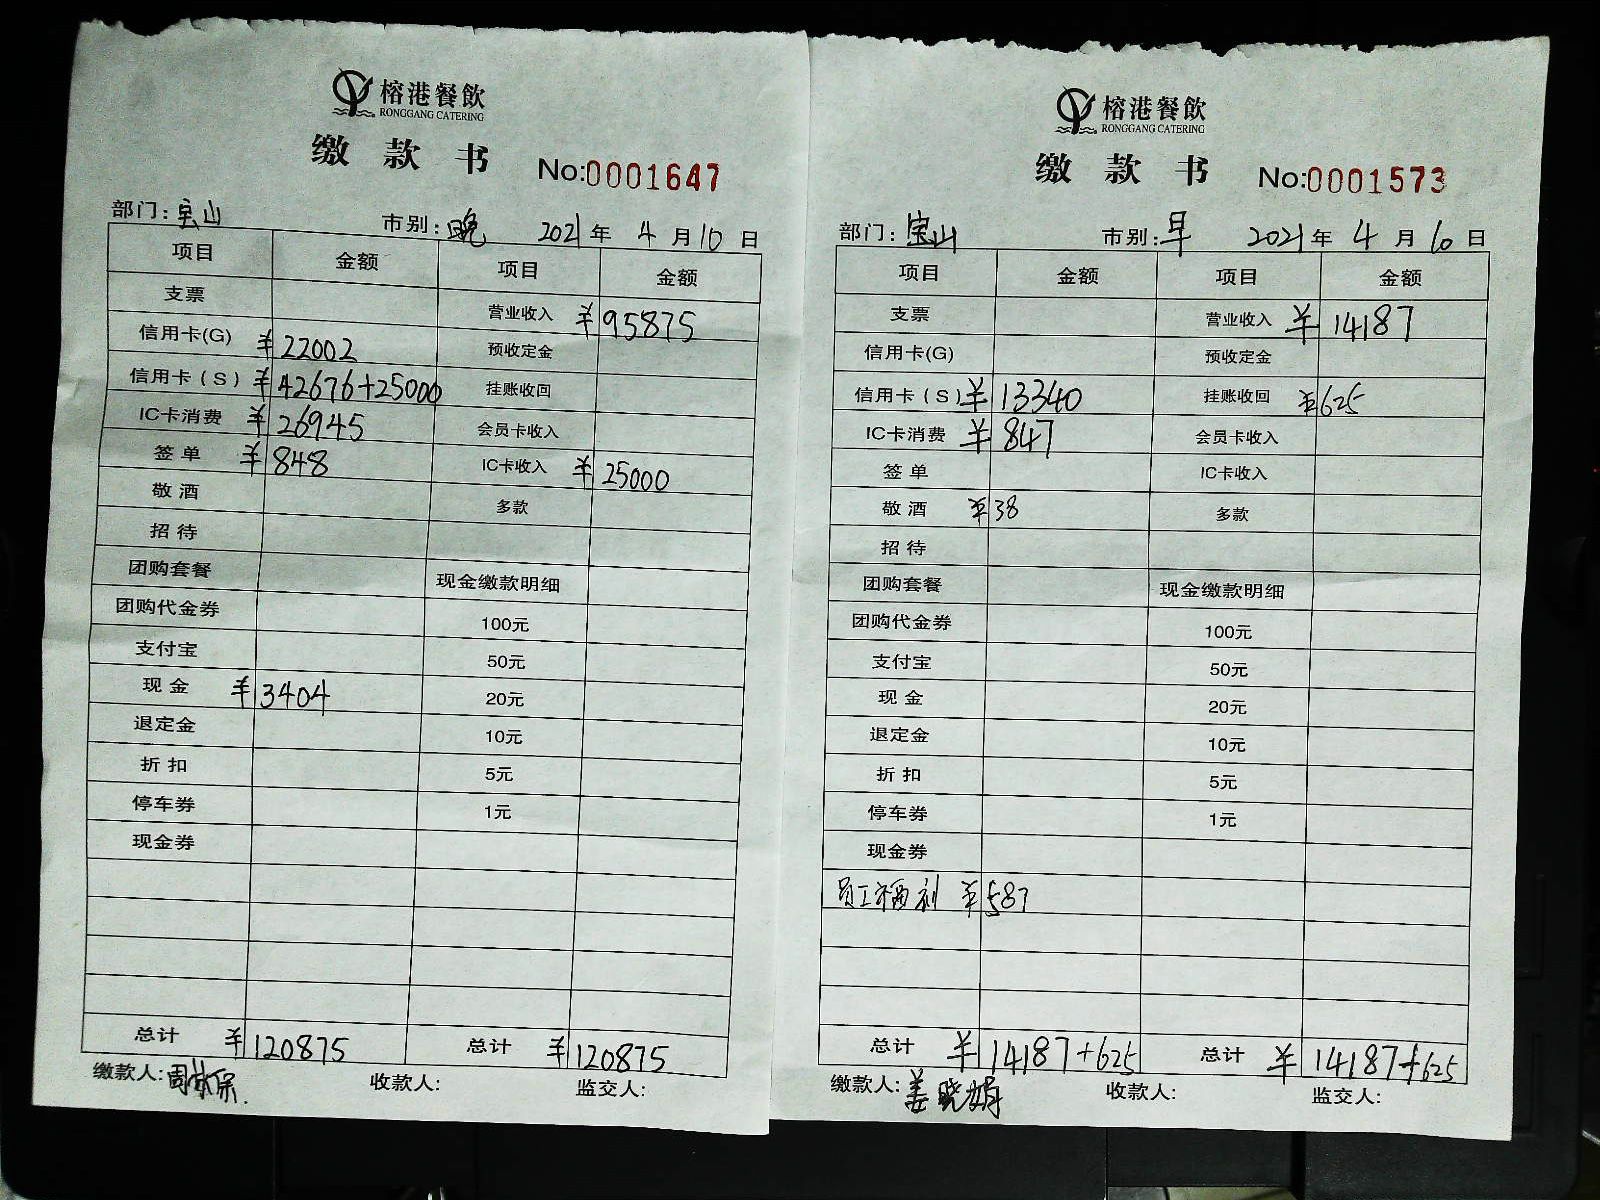 榕港餐飲
RONGGANG CATERING
缴款书 No:0001647
部门:宝山 市别:晚 2021年4月10日
项目 金额 项目 金额
支票 营业收入 ¥95875
信用卡(G) ¥22002 预收定金
信用卡(S) ¥42676+25000 挂账收回
IC卡消费 ¥26945 会员卡收入
签单 ¥848 IC卡收入 ¥25000
敬酒 多款
招待
团购套餐 现金缴款明细
团购代金券 100元
支付宝 50元
现金 ¥3404 20元
退定金 10元
折扣 5元
停车券 1元
现金券
总计 ¥120875 总计 ¥120875
缴款人: 收款人: 监交人:
榕港餐飲
RONGGANG CATERING
缴款书 No:0001573
部门:宝山 市别:早 2021年4月10日
项目 金额 项目 金额
支票 营业收入 ¥14187
信用卡(G) 预收定金
信用卡(S) ¥13340 挂账收回 ¥625
IC卡消费 ¥847 会员卡收入
签单 IC卡收入
敬酒 ¥38 多款
招待
团购套餐 现金缴款明细
团购代金券 100元
支付宝 50元
现金 20元
退定金 10元
折扣 5元
停车券 1元
现金券
员工福利 ¥587
总计 ¥14187+625 总计 ¥14187+625
缴款人:姜晓娟 收款人: 监交人: